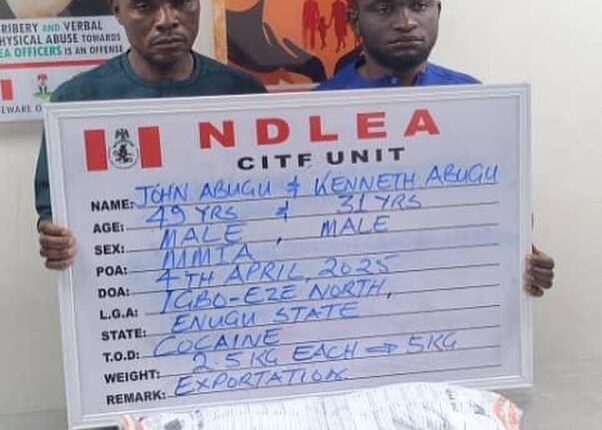 RIBERY AND VERBAL
PHYSICAL ABUSE TOWARDS
EA OFFICERS IS AN OFFENSE
BEWARE O
NDLEA
CITF UNIT
NAME: JOHN ABUGU & KENNETH ABUGU
AGE: 49 YRS & 31 YRS
SEX: MALE , MALE
POA: MMIA
DOA: 4TH APRIL, 2025
L.G.A: IGBO-EZE NORTH,
STATE: ENUGU STATE
T.O.D: COCAINE
WEIGHT: 2.5KG EACH ⇒ 5KG
REMARK: EXPORTATION